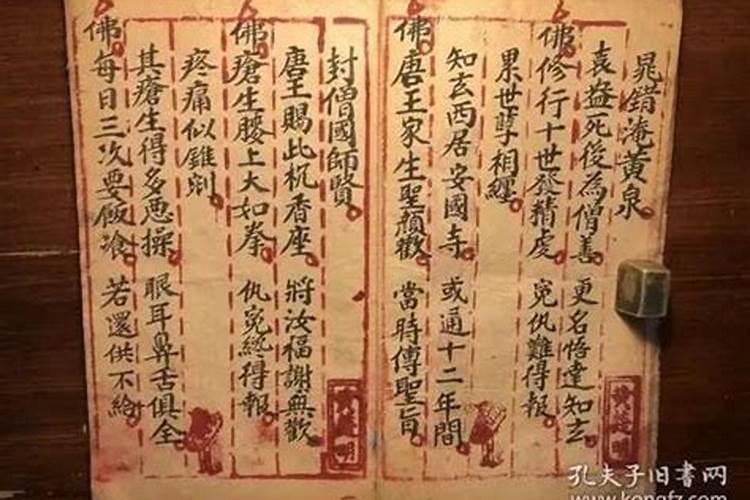 晁錯淹黃泉
袁益死後為僧善 更名悟達知玄
佛修行十世發精虔 冤仇難得報
累世孽相纏
知玄西居安國寺 或通十二年間
佛唐王家生聖顏歡 當時傳聖旨
封僧國師賢
唐王賜此杌香座 將汝福謝無歡
佛瘡生腰上大如拳 仇冤終得報
疼痛似錐剜
其瘡生得多悪操 眼耳鼻舌俱全
佛每日三次要飯飡 若還供不給
孔夫子旧书网
www.kongfz.com